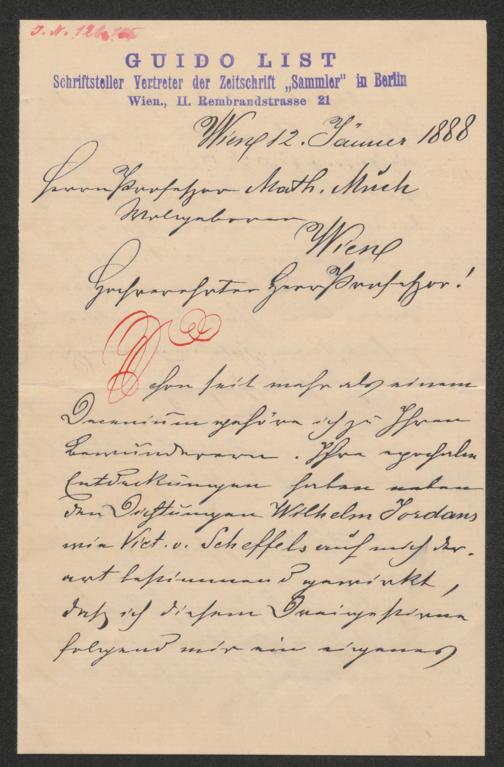 J. N. 126.
GUIDO LIST
Schriftsteller Vertreter der Zeitschrift „Sammler" in Berlin
Wien., II. Rembrandstrasse 21
Wien 12. Jänner 1888
Herrn Professor Math. Much
Wolgeboren
Wien
Hochverehrter Herr Professor!
Schon seit mehr als einem
Decenium gehöre ich zu Ihren
Bewunderern. Ihre epochalen
Entdeckungen haben neben
den Dichtungen Wilhelm Jordans
wie Vict. v. Scheffels auf mich der-
art bestimmend gewirkt,
daß ich diesem Dreigestirne
folgend mir ein eigenes